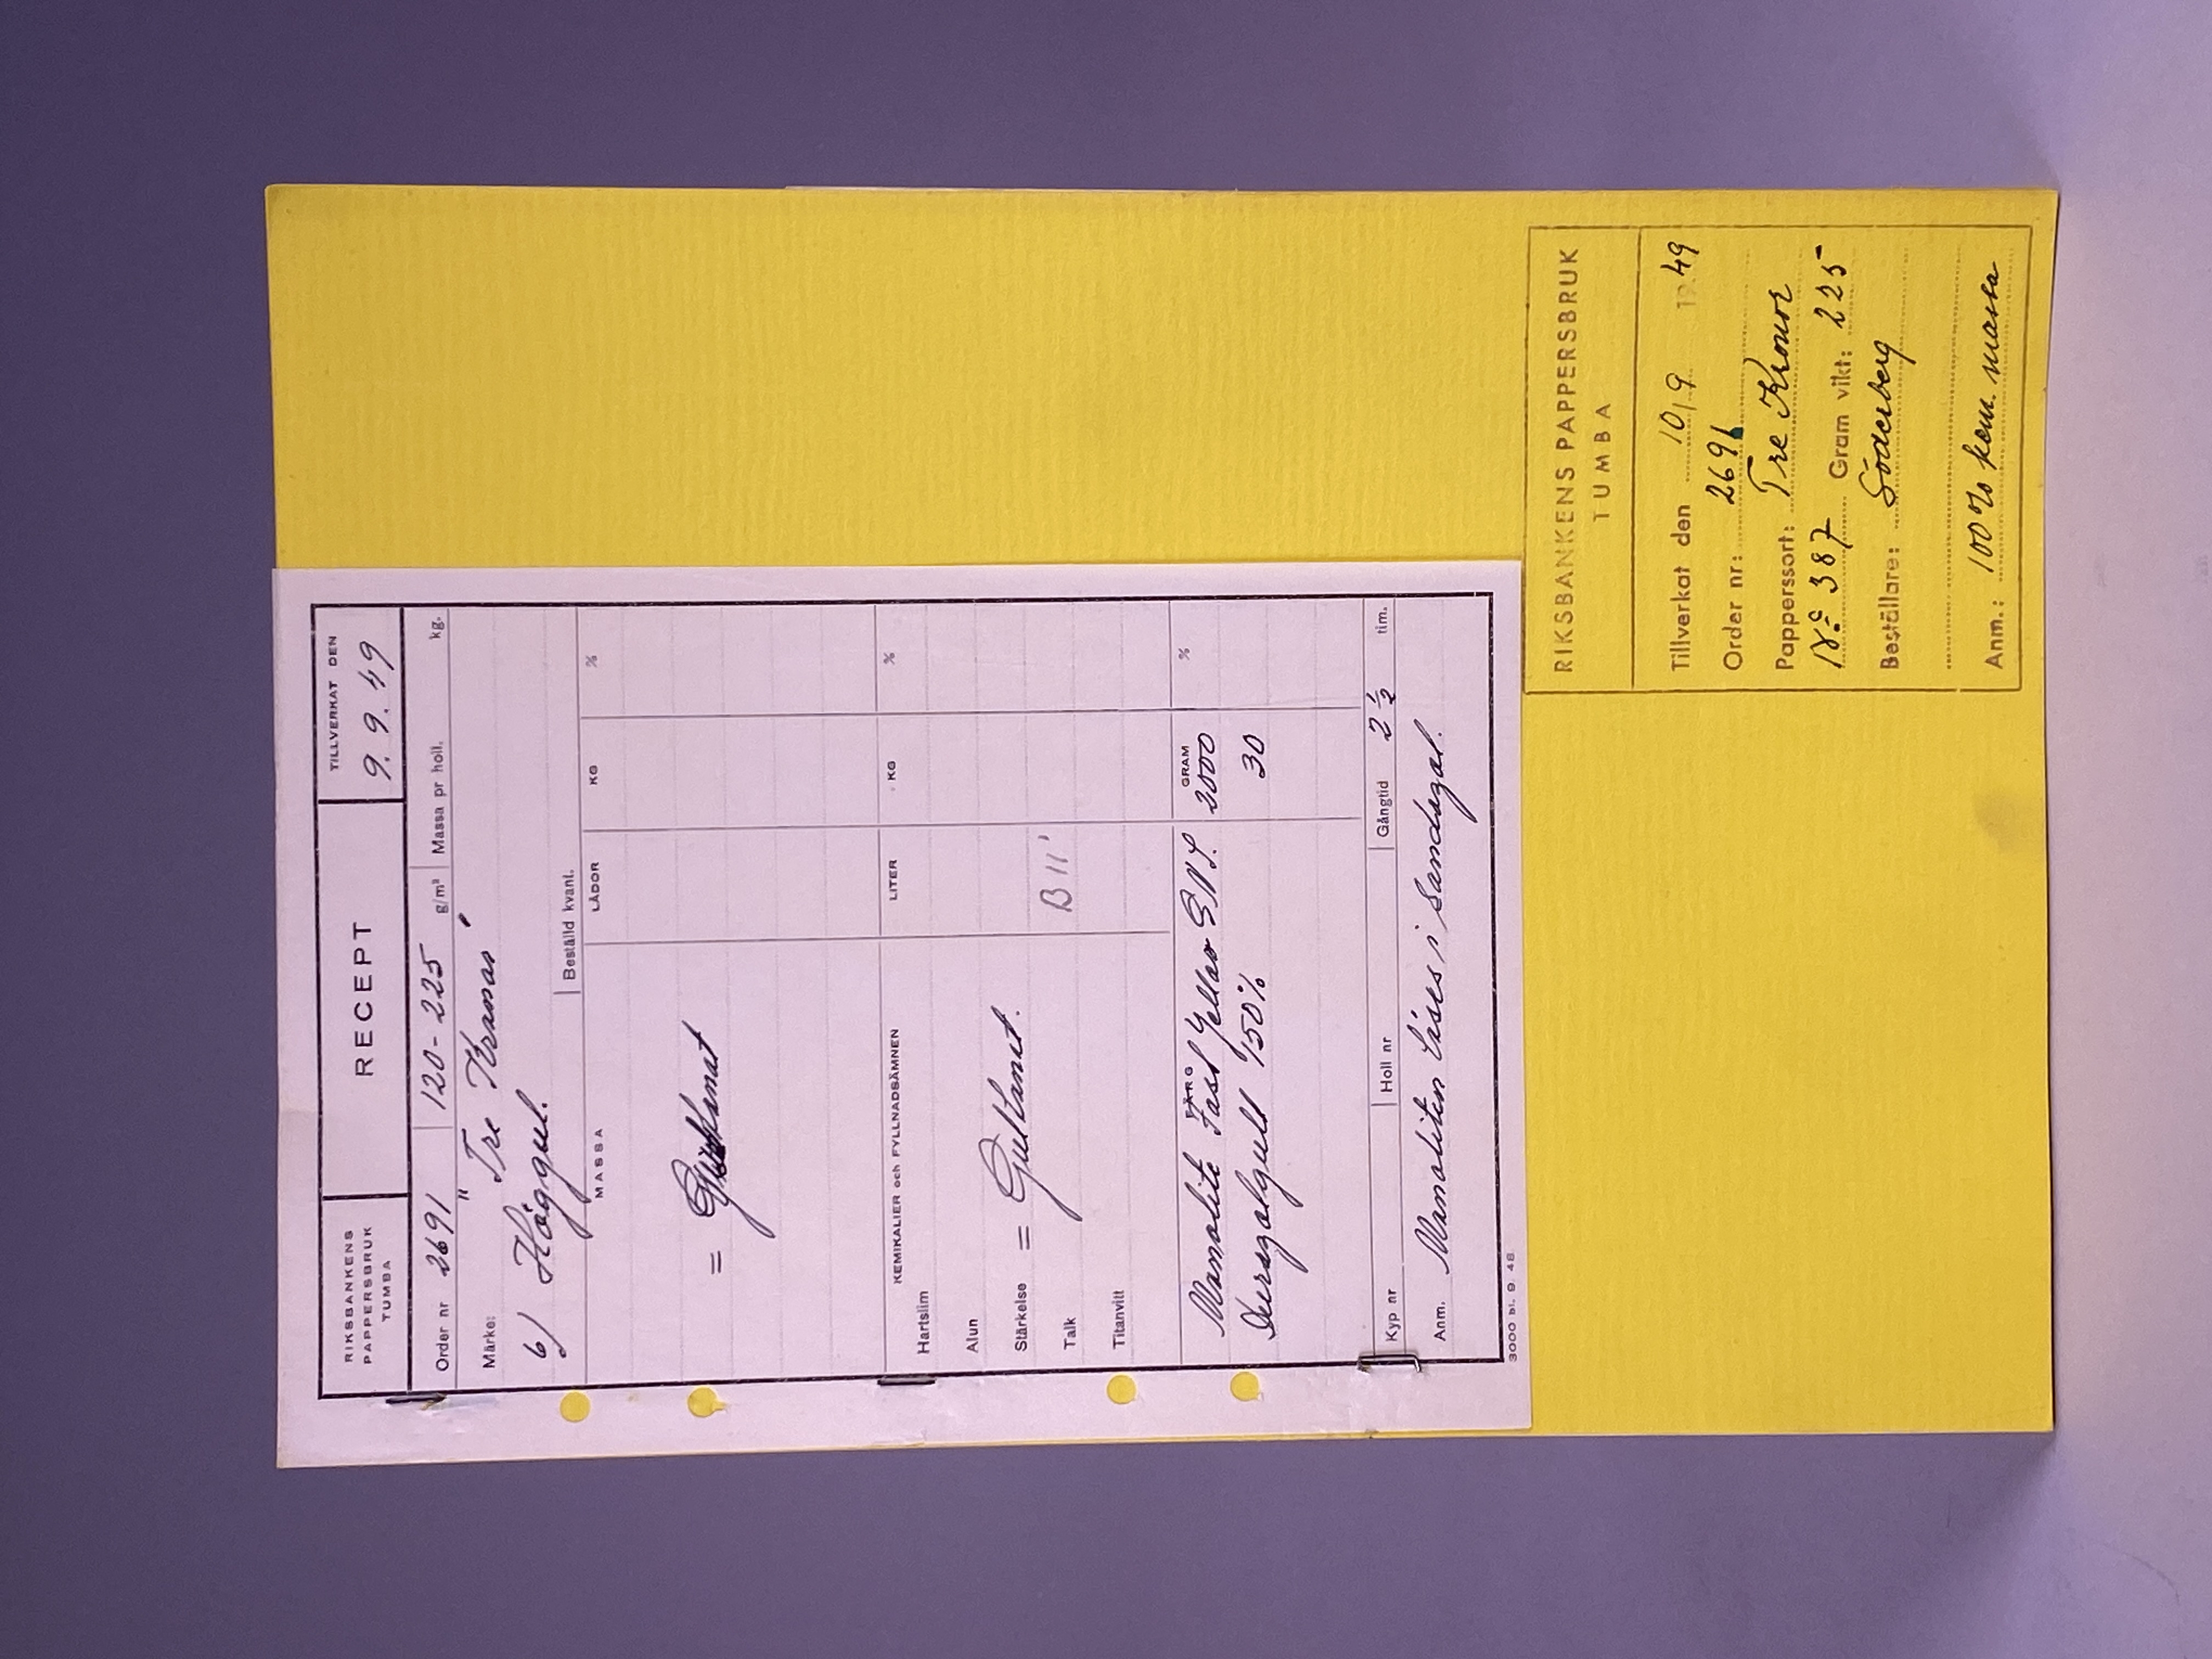 RIKSBANKENS
PAPPERSBRUK
TUMBA
RECEPT
TILLVERKAT DEN
9. 9. 49
Order nr 2691 120 - 225 g/m² Massa pr holl. kg.
Märke: "Tre Kronor"
6/ Höggul. Beställd kvant.
MASSA LÅDOR KG %
= Gulkanat
KEMIKALIER och FYLLNADSÄMNEN LITER KG %
Hartslim
Alun
Stärkelse = Gulkanat.
Talk B 11'
Titanvitt
FÄRG GRAM %
Fast Yellow 2500
150% 30
Kyp nr Holl nr Gångtid 2 ½ tim.
Anm. löses i
3000 bl. 9. 48
RIKSBANKENS PAPPERSBRUK
TUMBA
Tillverkat den 10/9 19 49
Order nr: 2691
Papperssort: Tre Kronor
No 387 Gram vikt: 225
Beställare: Söderberg
Anm.: 100% kem. massa